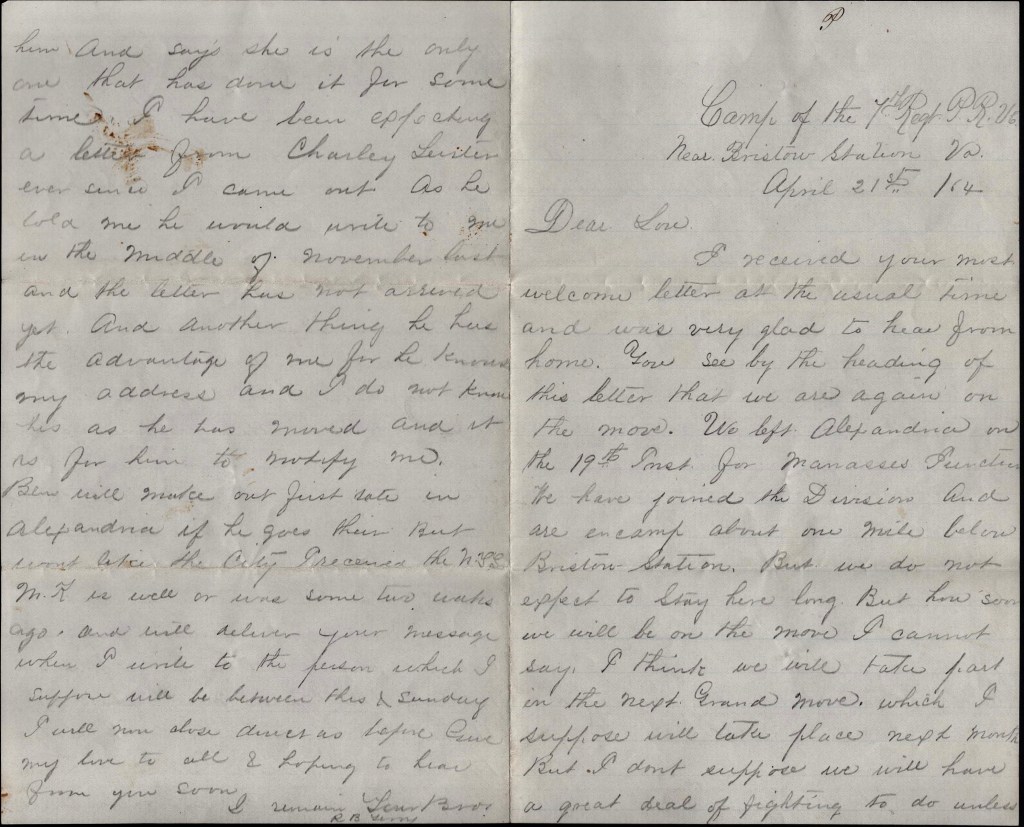 P
Camp of the 7th Regt P. R. V. C.
Near Bristow Station Va.
April 21st /64
Dear Lou.
I received your most
welcome letter at the usual time
and was very glad to hear from
home. You see by the heading of
this letter that we are again on
the move. We left Alexandria on
the 19th Inst. for Manasses Junction
We have joined the Division And
are encamp about one mile below
Bristow Station. But we do not
expect to stay here long. But how soon
we will be on the move I cannot
say. I think we will take part
in the next Grand move. which I
suppose will take place next month
But I dont suppose we will have
a great deal of fighting to do unless
him And says she is the only
one that has done it for some
time. I have been expecting
a letter from Charley
ever since I came out As he
told me he would write to me
in the middle of november last
and the letter has not arrived
yet. And another thing he has
the advantage of me for he knows
my address and I do not know
his as he has moved and it
is for him to notify me.
Ben will make out first rate in
Alexandria if he goes their But
wont like the City I received the
M. K is well or was some two weeks
ago. and will deliver your message
when I write to the person which I
suppose will be between this & sunday
I will now close direct as before Give
my love to all & hoping to hear
from you soon
I remain Your Bro.
R B